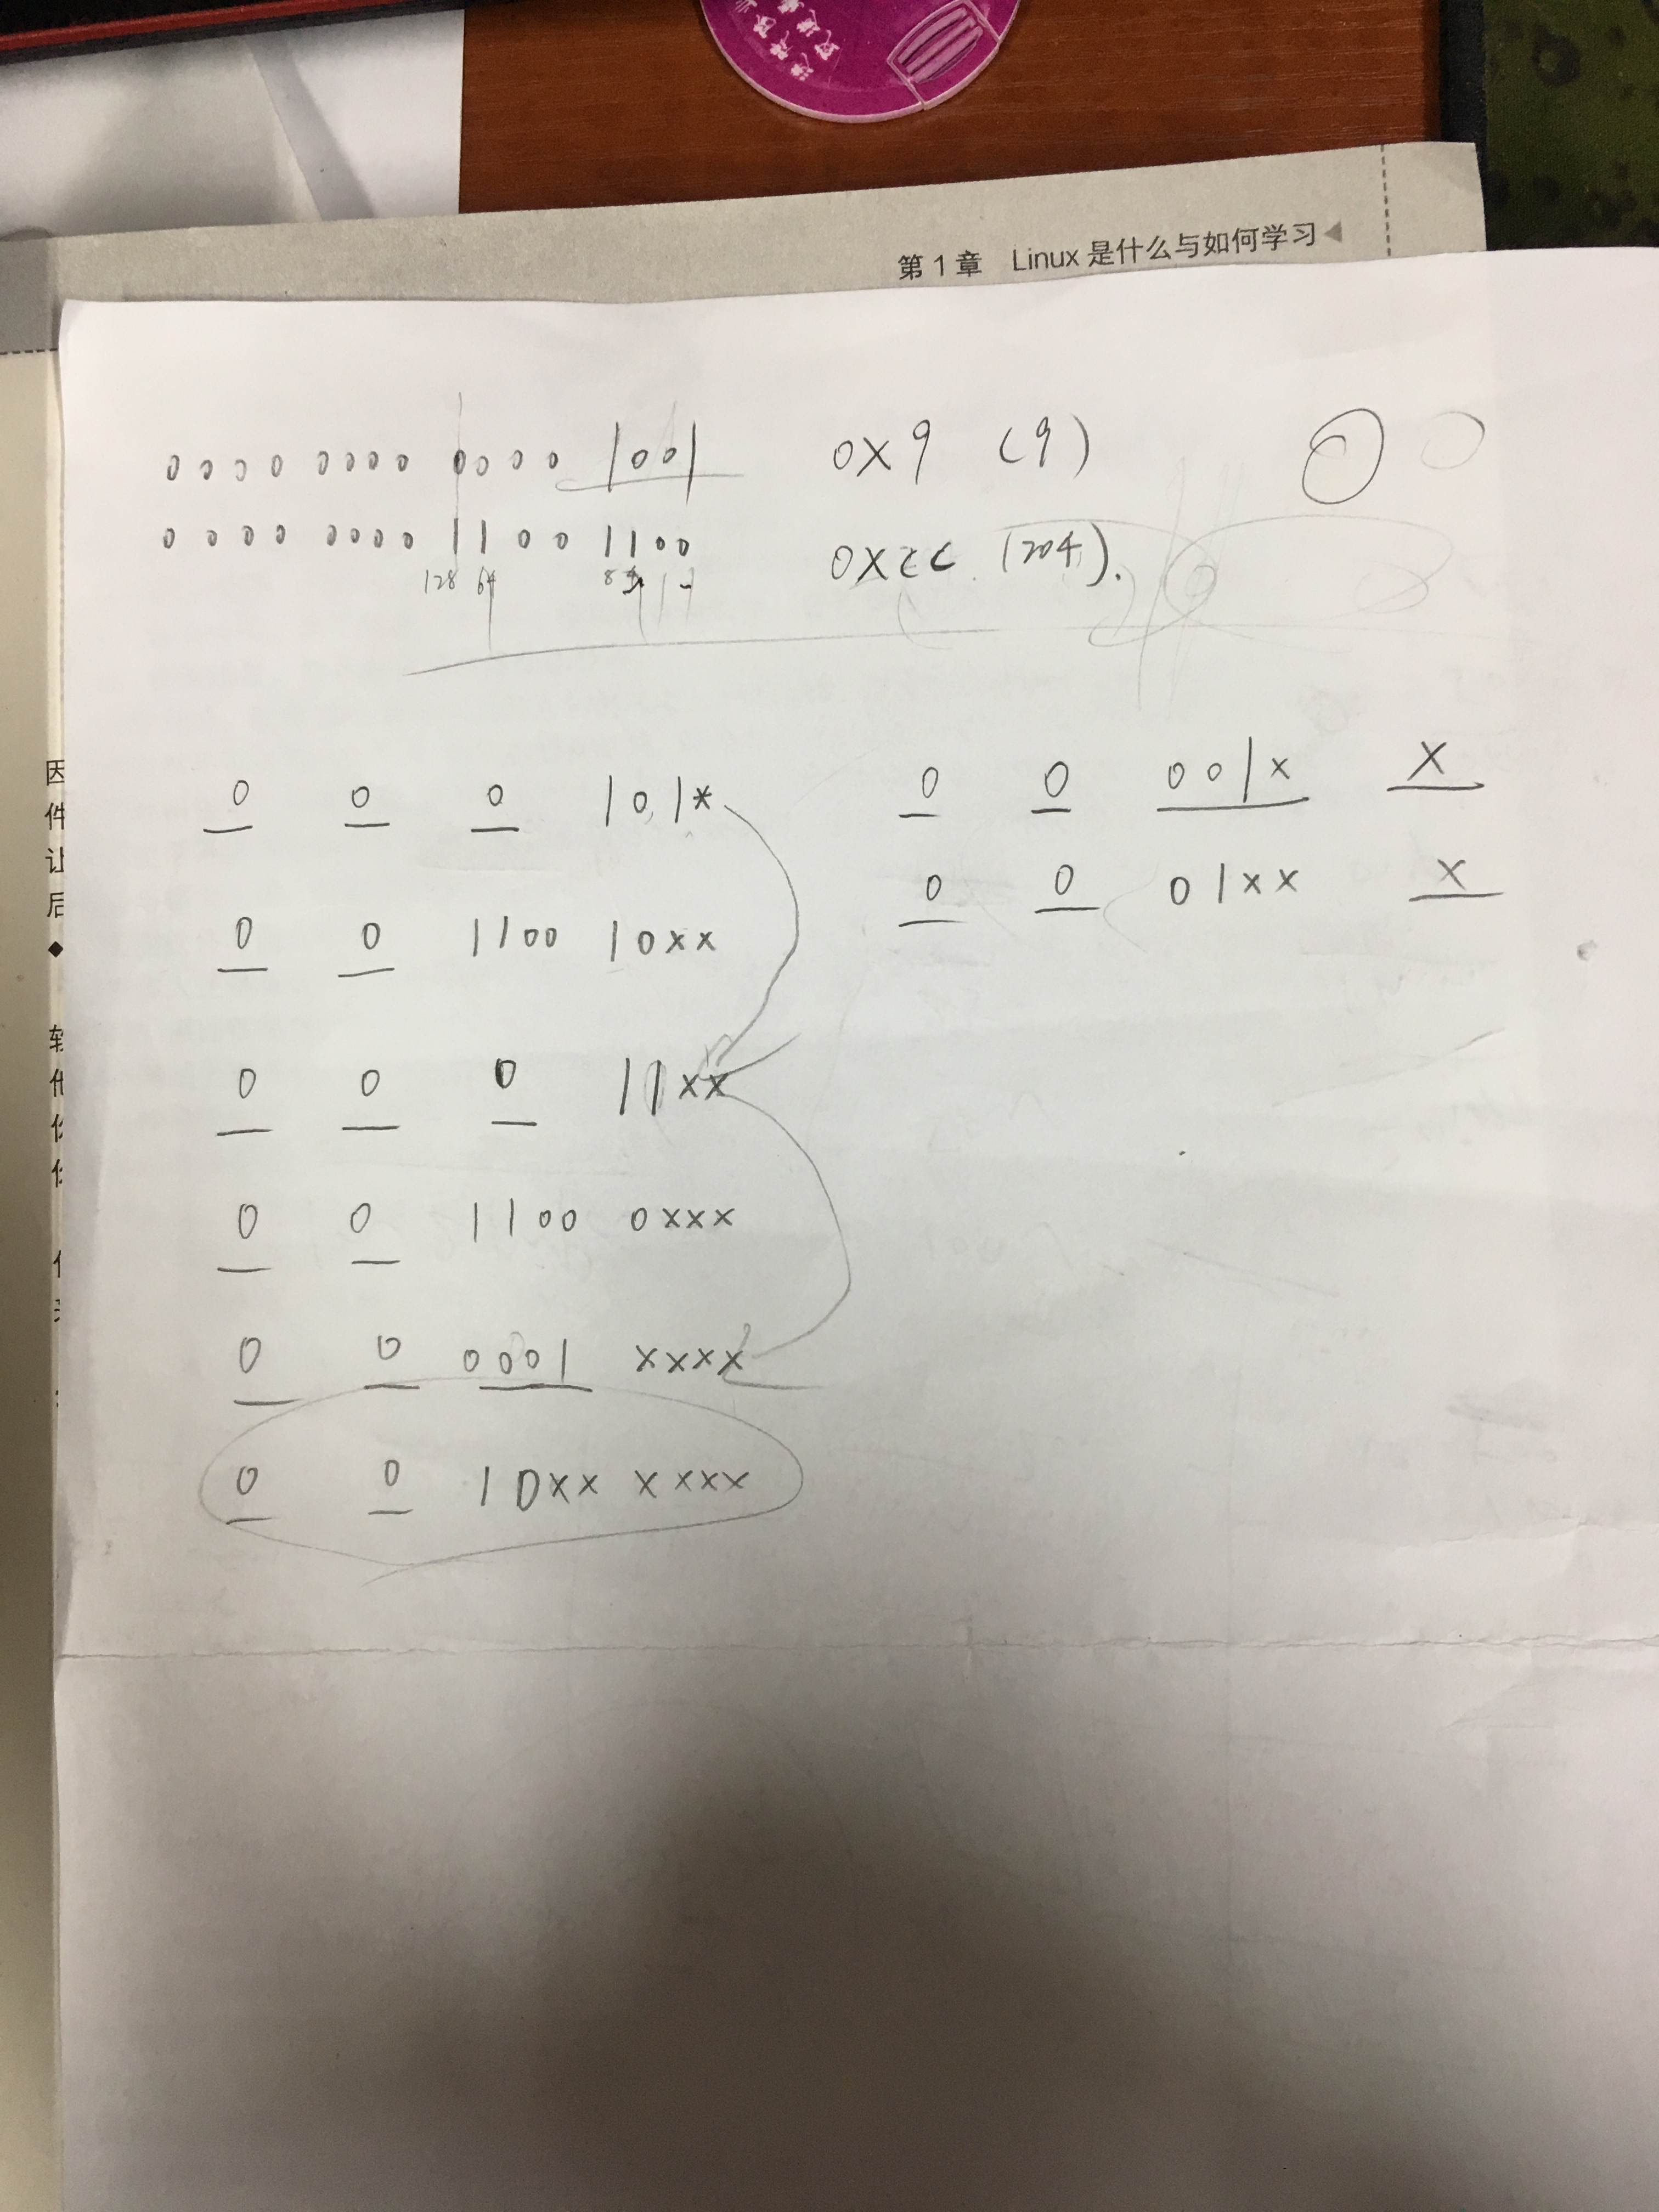 第1章 Linux 是什么与如何学习
0000 0000 0000 1001 0x9 (9)
0000 0000 1100 1100 0xcc (204).
128 64 8 4
0 0 0 101*
0 0 1100 10xx
0 0 0 11xx
0 0 1100 0xxx
0 0 0001 xxxx
0 0 10xx xxxx
0 0 001x x
0 0 01xx x
因
件
让
后
◆